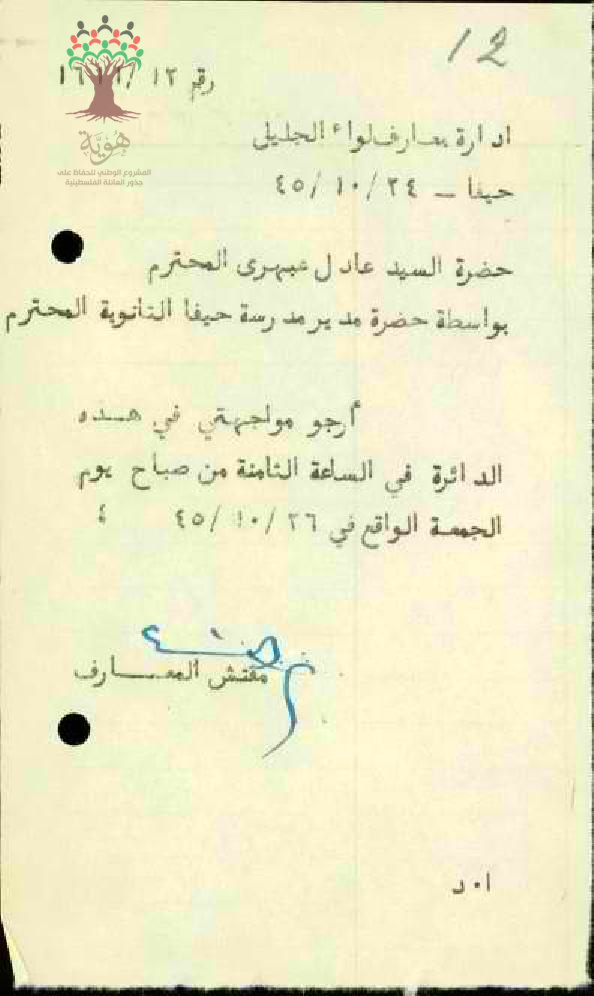 12
رقم ١٣/
هُويَّة
المشروع الوطني للحفاظ على
جذور العائلة الفلسطينية
ادارة معارف لواء الجليلى
حيفا ـ ٢٤/١٠/٤٥
حضرة السيد عادل عبهرى المحترم
بواسطة حضرة مدير مدرسة حيفا الثانوية المحترم
أرجو مواجهتي في هـــذه
الدائرة في الساعة الثامنة من صباح يوم
الجمعـة الواقع في ٢٦/١٠/٤٥ ،
مفتش المعـــارف
ا٠د